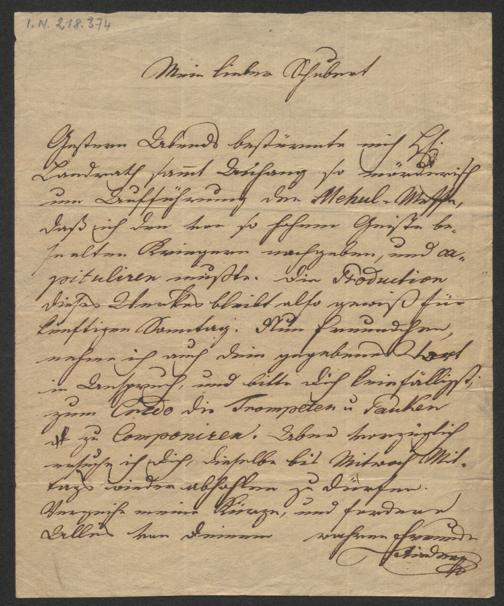 I. N. 218.374
Mein lieber Schubert
Gestern Abends bestürmte mich
Landrath sammt Anhang so mörderisch
um Aufführung der Mehul-Messe,
daß ich den von so hohem Geiste be-
seelten Kriegern nachgeben, und ca-
pituliren mußte. Die Production
dieses Werkes bleibt also gewiß für
künftigen Sonntag. Nun Freundchen,
nehme ich auch dein gegebenes Wort
in Anspruch, und bitte dich
zum Credo die Trompeten u Pauken
zu Componiren. Aber vorzüglich
ersuche ich dich, dieselbe bis Mitwoch Mit-
tags wieder abhohlen zu dürfen.
Verzeihe meine Kürze, und fordere
Alles von deinem wahren Freunde